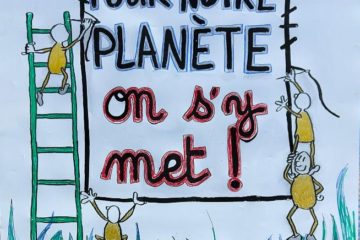 POUR NOTRE
PLANÈTE
on s'y
met !